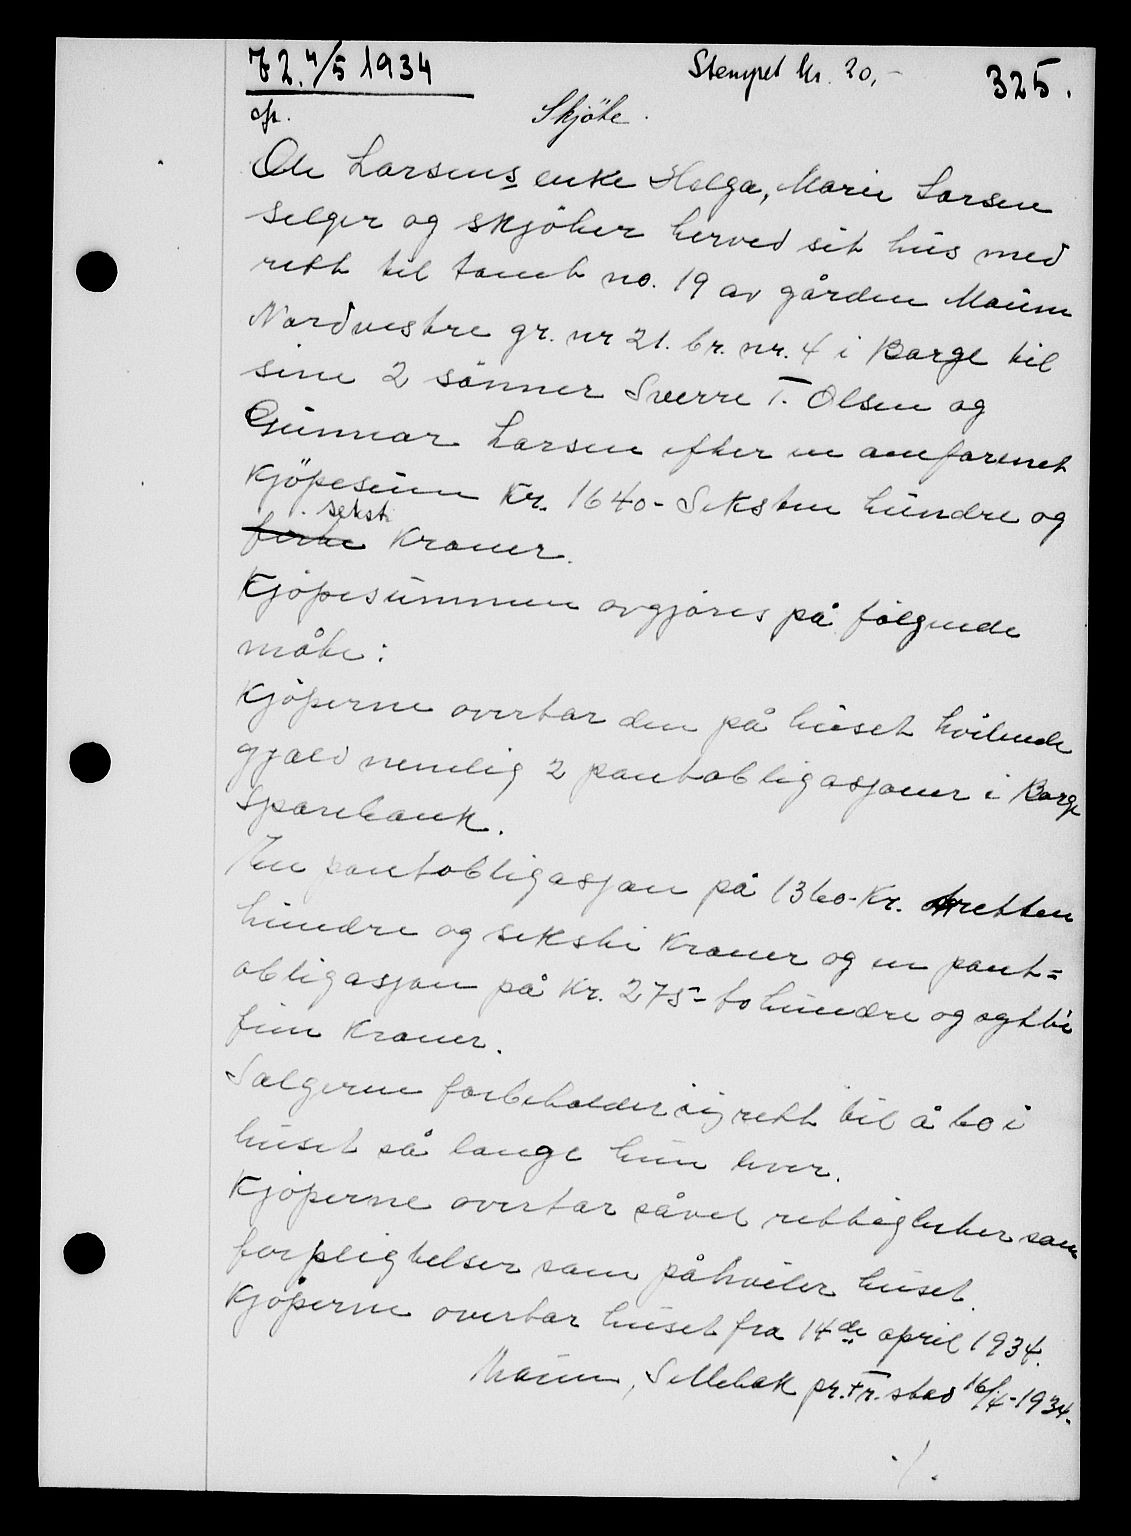 72. 4/5 1934
Stempet kr. 20,-
325.
Skjöte.
Ole Larsens enke Helga, Marie Larsen
selger og skjöter herved sit hus med
rett til tomt no. 19 av gården Maum
Nordvestre gr. nr 21. br. nr. 4 i Borge til
sine 2 sönner Sverre T. Olsen og
Gunnar Larsen efter en omforenet
kjöpesum Kr. 1640- Seksten hundre og
seksti
firti Kroner.
Kjöpesummen avgjöres på fölgende
måte:
Kjöperne overtar den på huset hvilende
gjæld nemlig 2 pantobligasjoner i Borge
Sparebank.
En pantobligasjon på 1360-Kr. tretten
hundre og seksti Kroner og en pant=
obligasjon på Kr. 275- to hundre og sytti
fem Kroner.
Sælgerne forbeholder sig rett til å bo i
huset så lenge hun lever.
Kjöperne overtar såvel rettigheter som
forpligtelser som påhviler huset.
Kjöperne overtar huset fra 14de april 1934.
Maum, Sellebak pr. Fr.stad 16/4-1934-
./.